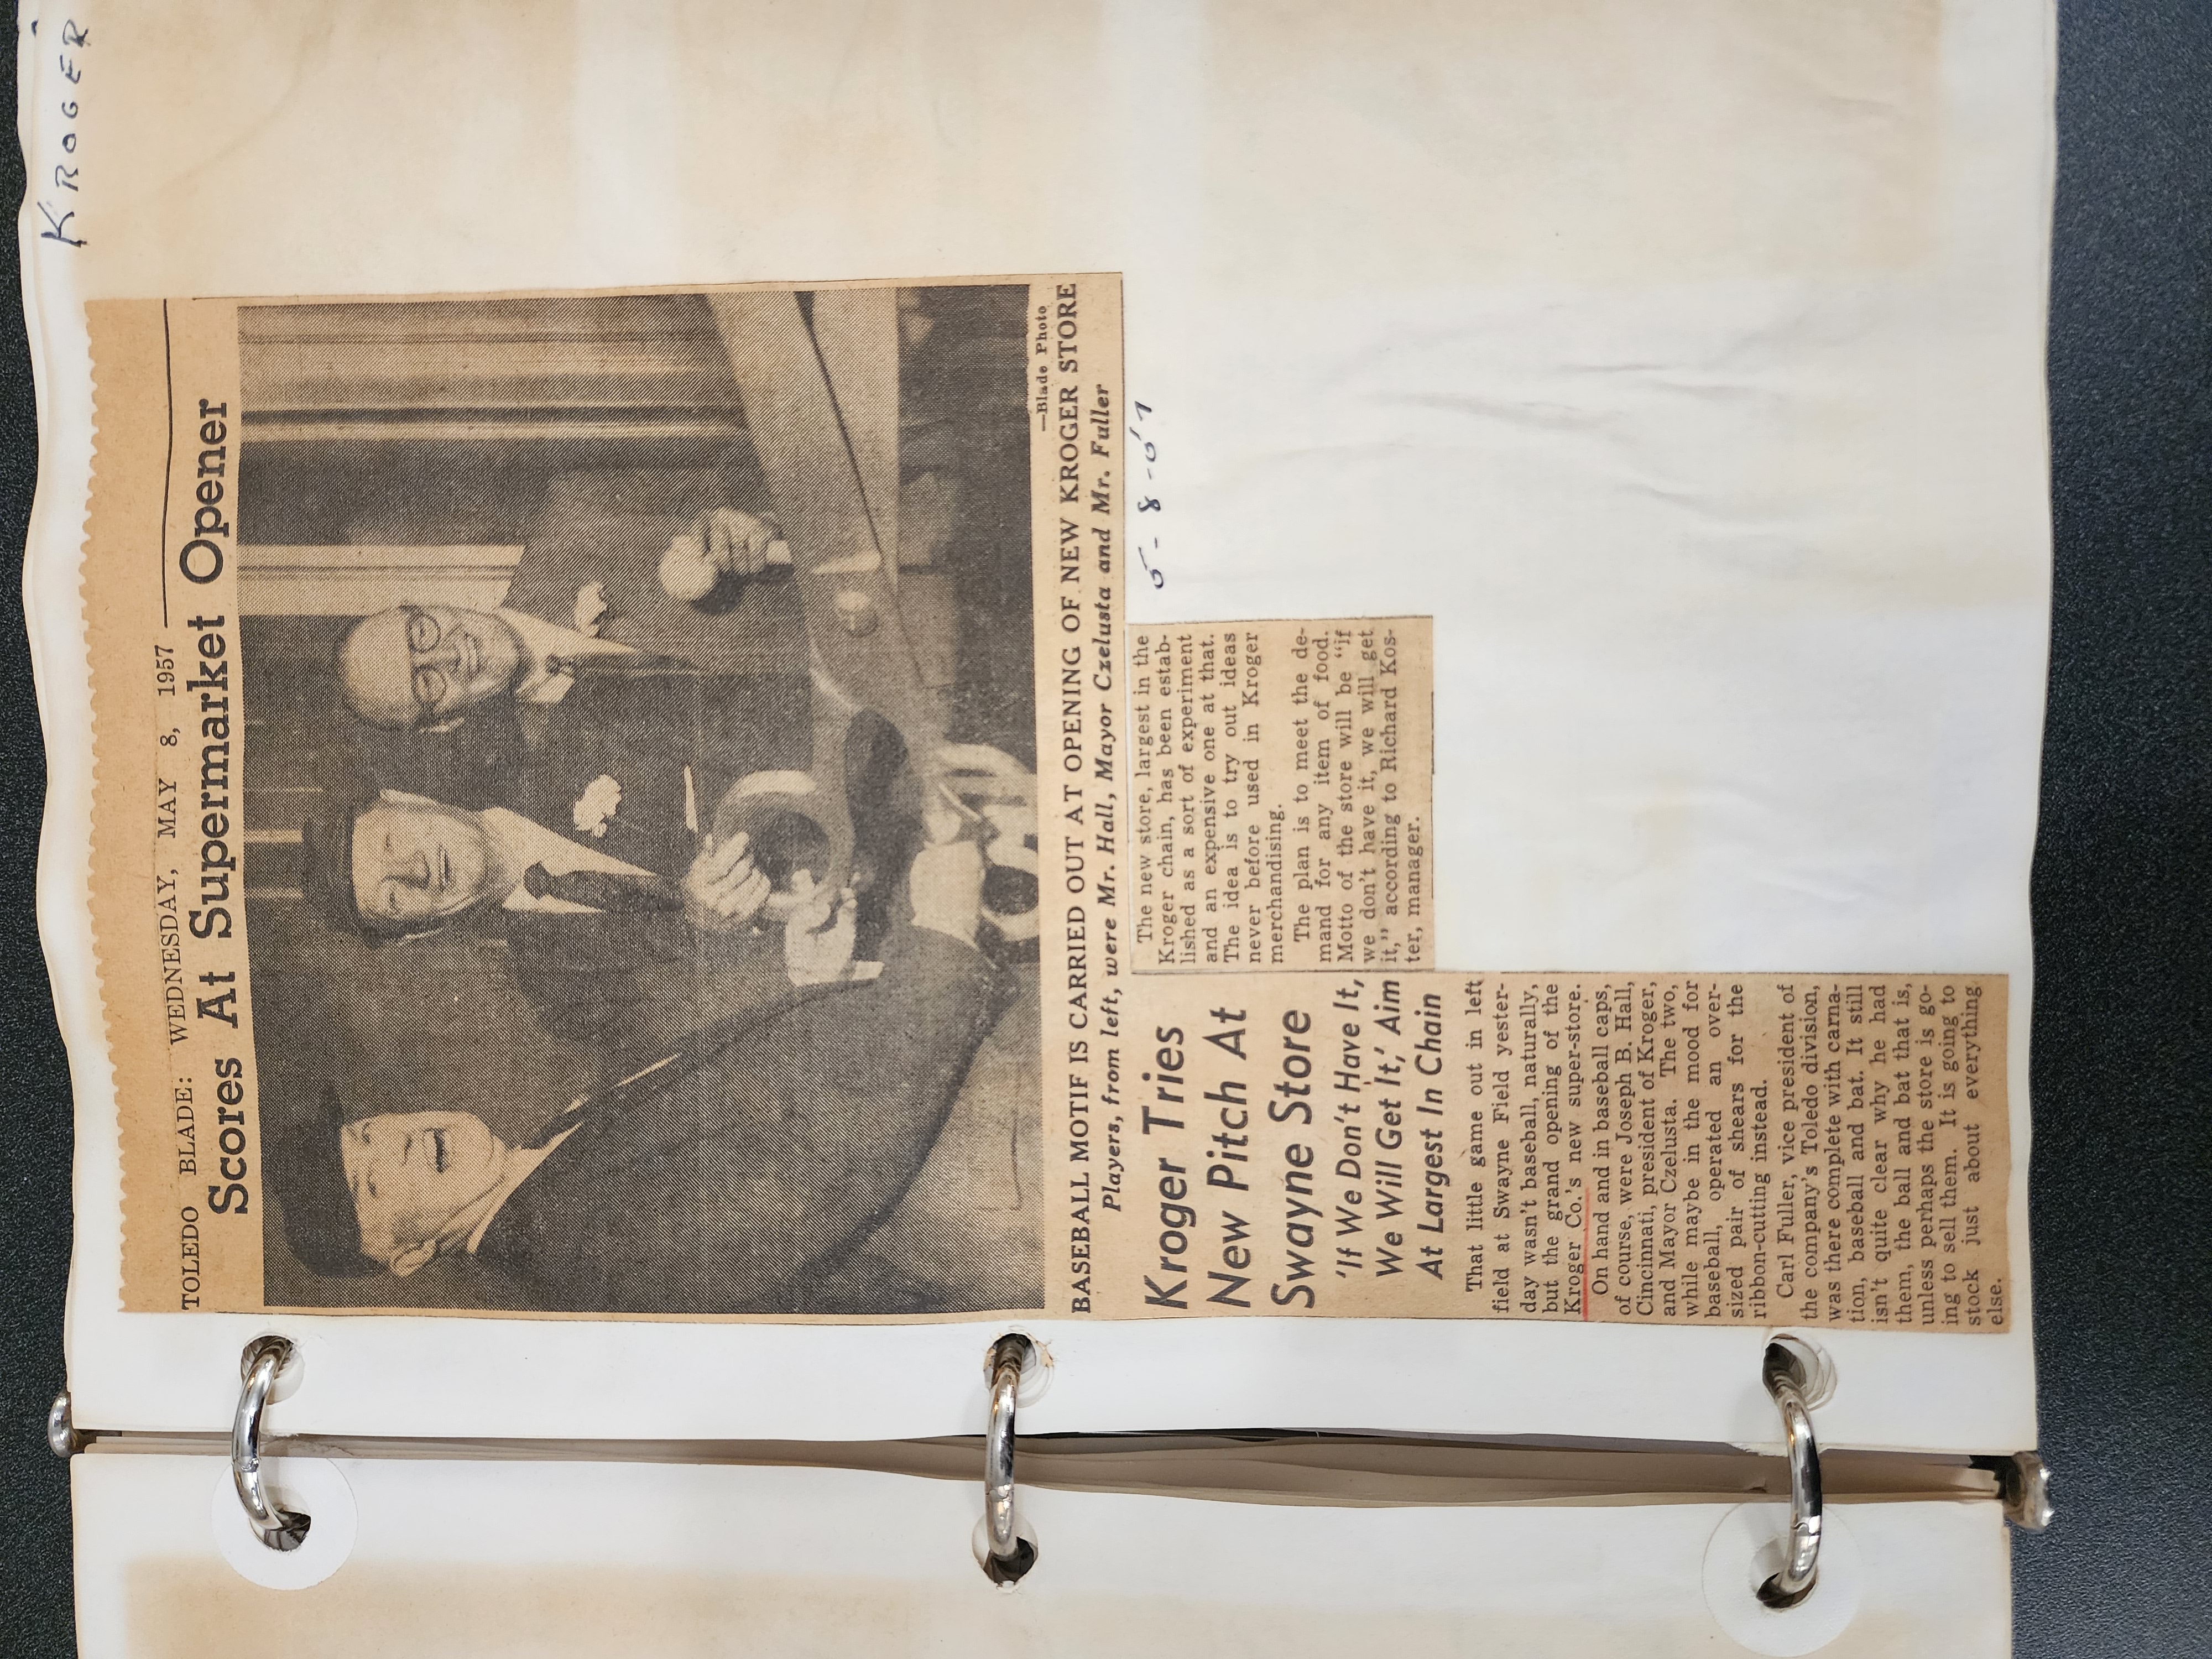 KROGER
TOLEDO BLADE: WEDNESDAY, MAY 8, 1957
Scores At Supermarket Opener
—Blade Photo
BASEBALL MOTIF IS CARRIED OUT AT OPENING OF NEW KROGER STORE
Players, from left, were Mr. Hall, Mayor Czelusta and Mr. Fuller
5-8-57
Kroger Tries
New Pitch At
Swayne Store
'If We Don't Have It,
We Will Get It,' Aim
At Largest In Chain
That little game out in left
field at Swayne Field yester-
day wasn't baseball, naturally,
but the grand opening of the
Kroger Co.'s new super-store.
On hand and in baseball caps,
of course, were Joseph B. Hall,
Cincinnati, president of Kroger,
and Mayor Czelusta. The two,
while maybe in the mood for
baseball, operated an over-
sized pair of shears for the
ribbon-cutting instead.
Carl Fuller, vice president of
the company's Toledo division,
was there complete with carna-
tion, baseball and bat. It still
isn't quite clear why he had
them, the ball and bat that is,
unless perhaps the store is go-
ing to sell them. It is going to
stock just about everything
else.
The new store, largest in the
Kroger chain, has been estab-
lished as a sort of experiment
and an expensive one at that.
The idea is to try out ideas
never before used in Kroger
merchandising.
The plan is to meet the de-
mand for any item of food.
Motto of the store will be "if
we don't have it, we will get
it," according to Richard Kos-
ter, manager.